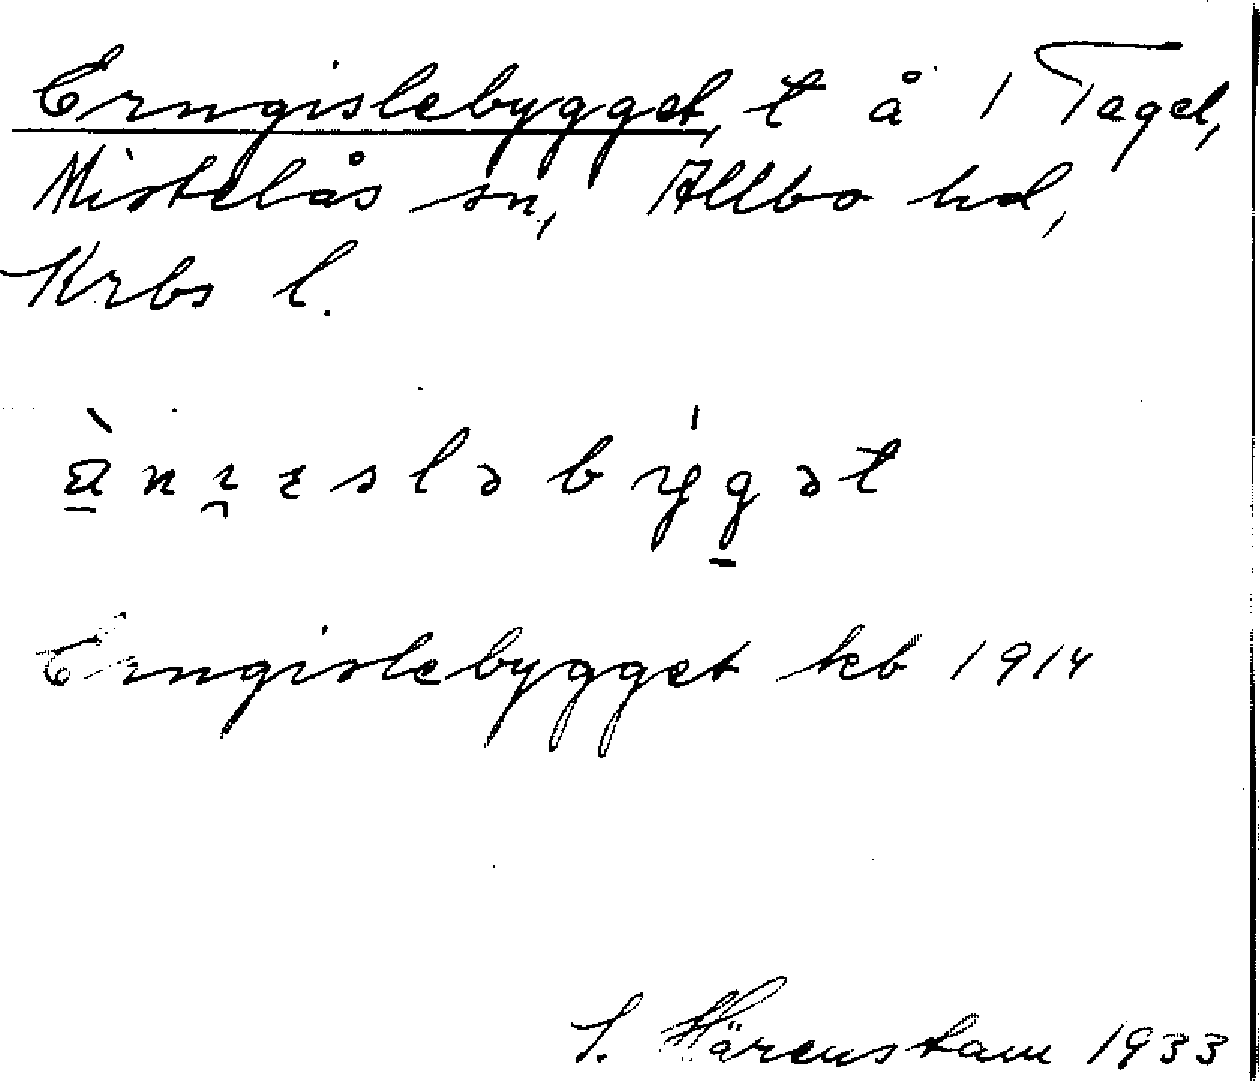 Erngislebygget, t å 1 Tagel,
Mistelås sn, Allbo hd,
Krbs l.
Erngislebygget kb 1914
S. Härenstam 1933